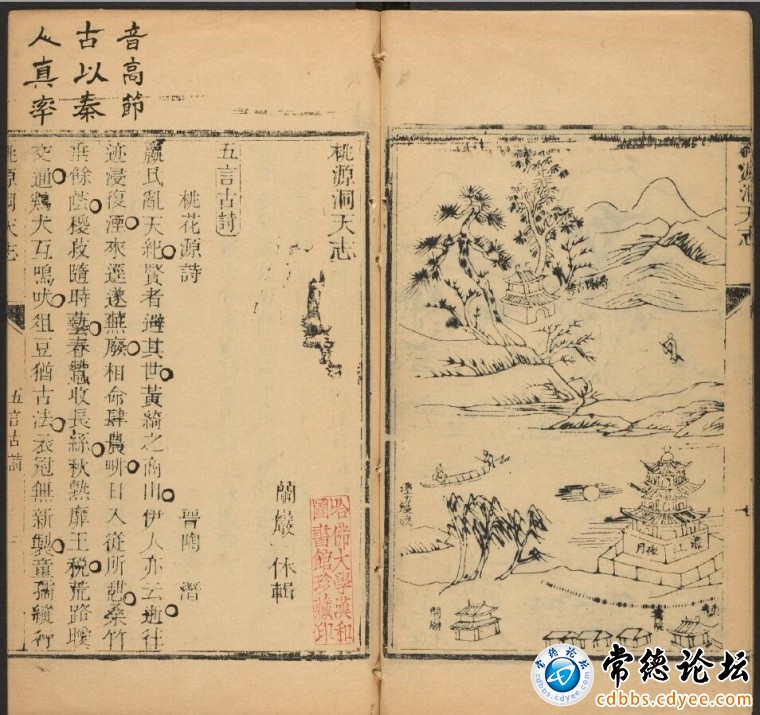 源洞天志
音高節
古以秦
人真率
桃源洞天志
蘭巖 休輯
五言古詩
桃花源詩 晉陶潛
嬴氏亂天紀賢者避其世黃綺之商山伊人亦云逝往
迹浸復湮來逕遂蕪廢相命肆農畊日入從所憩桑竹
垂餘蔭稷菽隨時藝春蠶收長絲秋熟靡王稅荒路曖
交通鷄犬互鳴吠俎豆猶古法衣冠無新製童孺縱行
桃源洞天志
五言古詩
哈佛大學漢和
圖書館珍藏印
常德论坛
cdbbs.cdyee.com